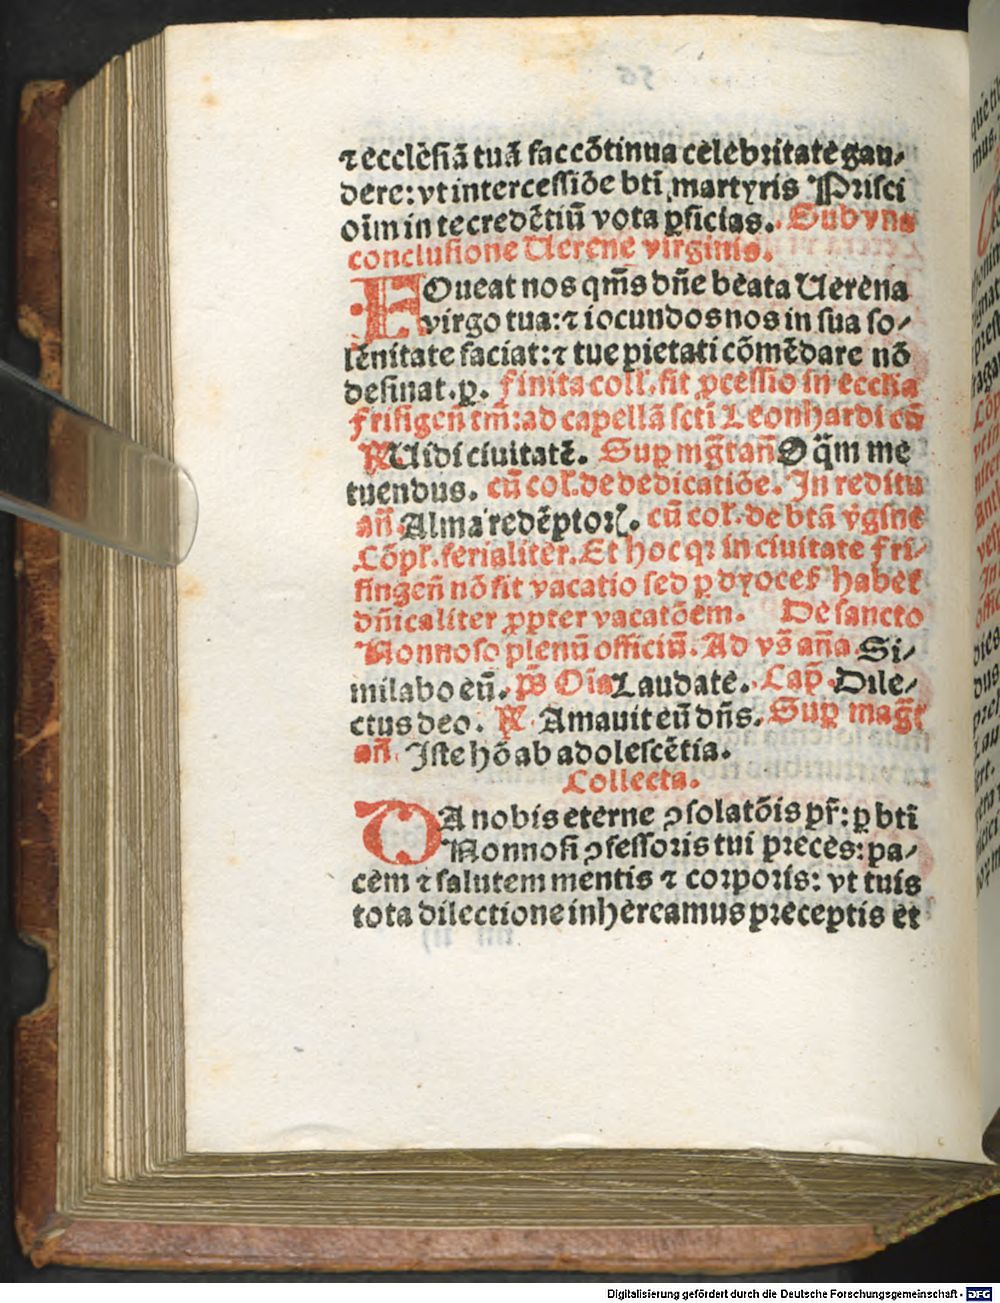 ⁊ ecclesiā tuā fac cōtinua celebꝛitate gau⸗
dere: vt intercessiōe bti martyris Pꝛisci
oīm in te credētiū vota ꝑficias. Sub vna
conclusione Uerene virginis.
FOueat nos qm̄s dn̄e beata Uerena
virgo tua: ⁊ iocundos nos in sua so⸗
lēnitate faciat: ⁊ tue pietati cōmēdare nō
desinat. ꝑ. finita coll̄. fit ꝓcessio in ecclia
frisigen̄ tm̄: ad capellā scti Leonhardi cū
℟ Uidi ciuitatē. Suꝑ mg̅t an̄ O q̄m me
tuendus. cū col̄. de dedicatiōe. In reditu
an̄ Alma redēptoꝛꝭ. cū col̄. de btā v̄gīne
Cōpl̄. ferialiter. Et hoc qꝛ in ciuitate fri⸗
singen̄ nō fit vacatio sed ꝑ dyoceſ̄ habet̄
dn̄icaliter ꝓpter vacatōem. De sancto
Nonnoso plenū officiū. Ad vs̄ an̄a Si⸗
milabo eū. ps̄ Oīa Laudate. Cap̄. Dile⸗
ctus deo. ℟ Amauit eū dn̄s. Suꝑ mag̅t
an̄. Iste hō ab adolescētia.
Collecta.
DA nobis eterne ꝯsolatōis pr̄: ꝑ bti
Nonnosi ꝯfessoꝛis tui pꝛeces: pa⸗
cem ⁊ salutem mentis ⁊ coꝛpoꝛis: vt tuis
tota dilectione inhereamus pꝛeceptis et
Digitalisierung gefördert durch die Deutsche Forschungsgemeinschaft - DFG